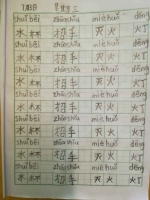 7月3日 星期三
shuǐ bēi zhāo shǒu miè huǒ dēng
水杯 招手 灭火 灯
shuǐ bēi zhāo shǒu miè huǒ dēng
水杯 招手 灭火 灯
shuǐ bēi zhāo shǒu miè huǒ dēng
水杯 招手 灭火 灯
shuǐ bēi zhāo shǒu miè huǒ dēng
水杯 招手 灭火 灯
shuǐ bēi zhāo shǒu miè huǒ dēng
水杯 招手 灭火 灯
shuǐ bēi zhāo shǒu miè huǒ dēng
水杯 招手 灭火 灯
shuǐ bēi zhāo shǒu miè huǒ dēng
水杯 招手 灭火 灯
shuǐ bēi zhāo shǒu miè huǒ dēng
水杯 招手 灭火 灯